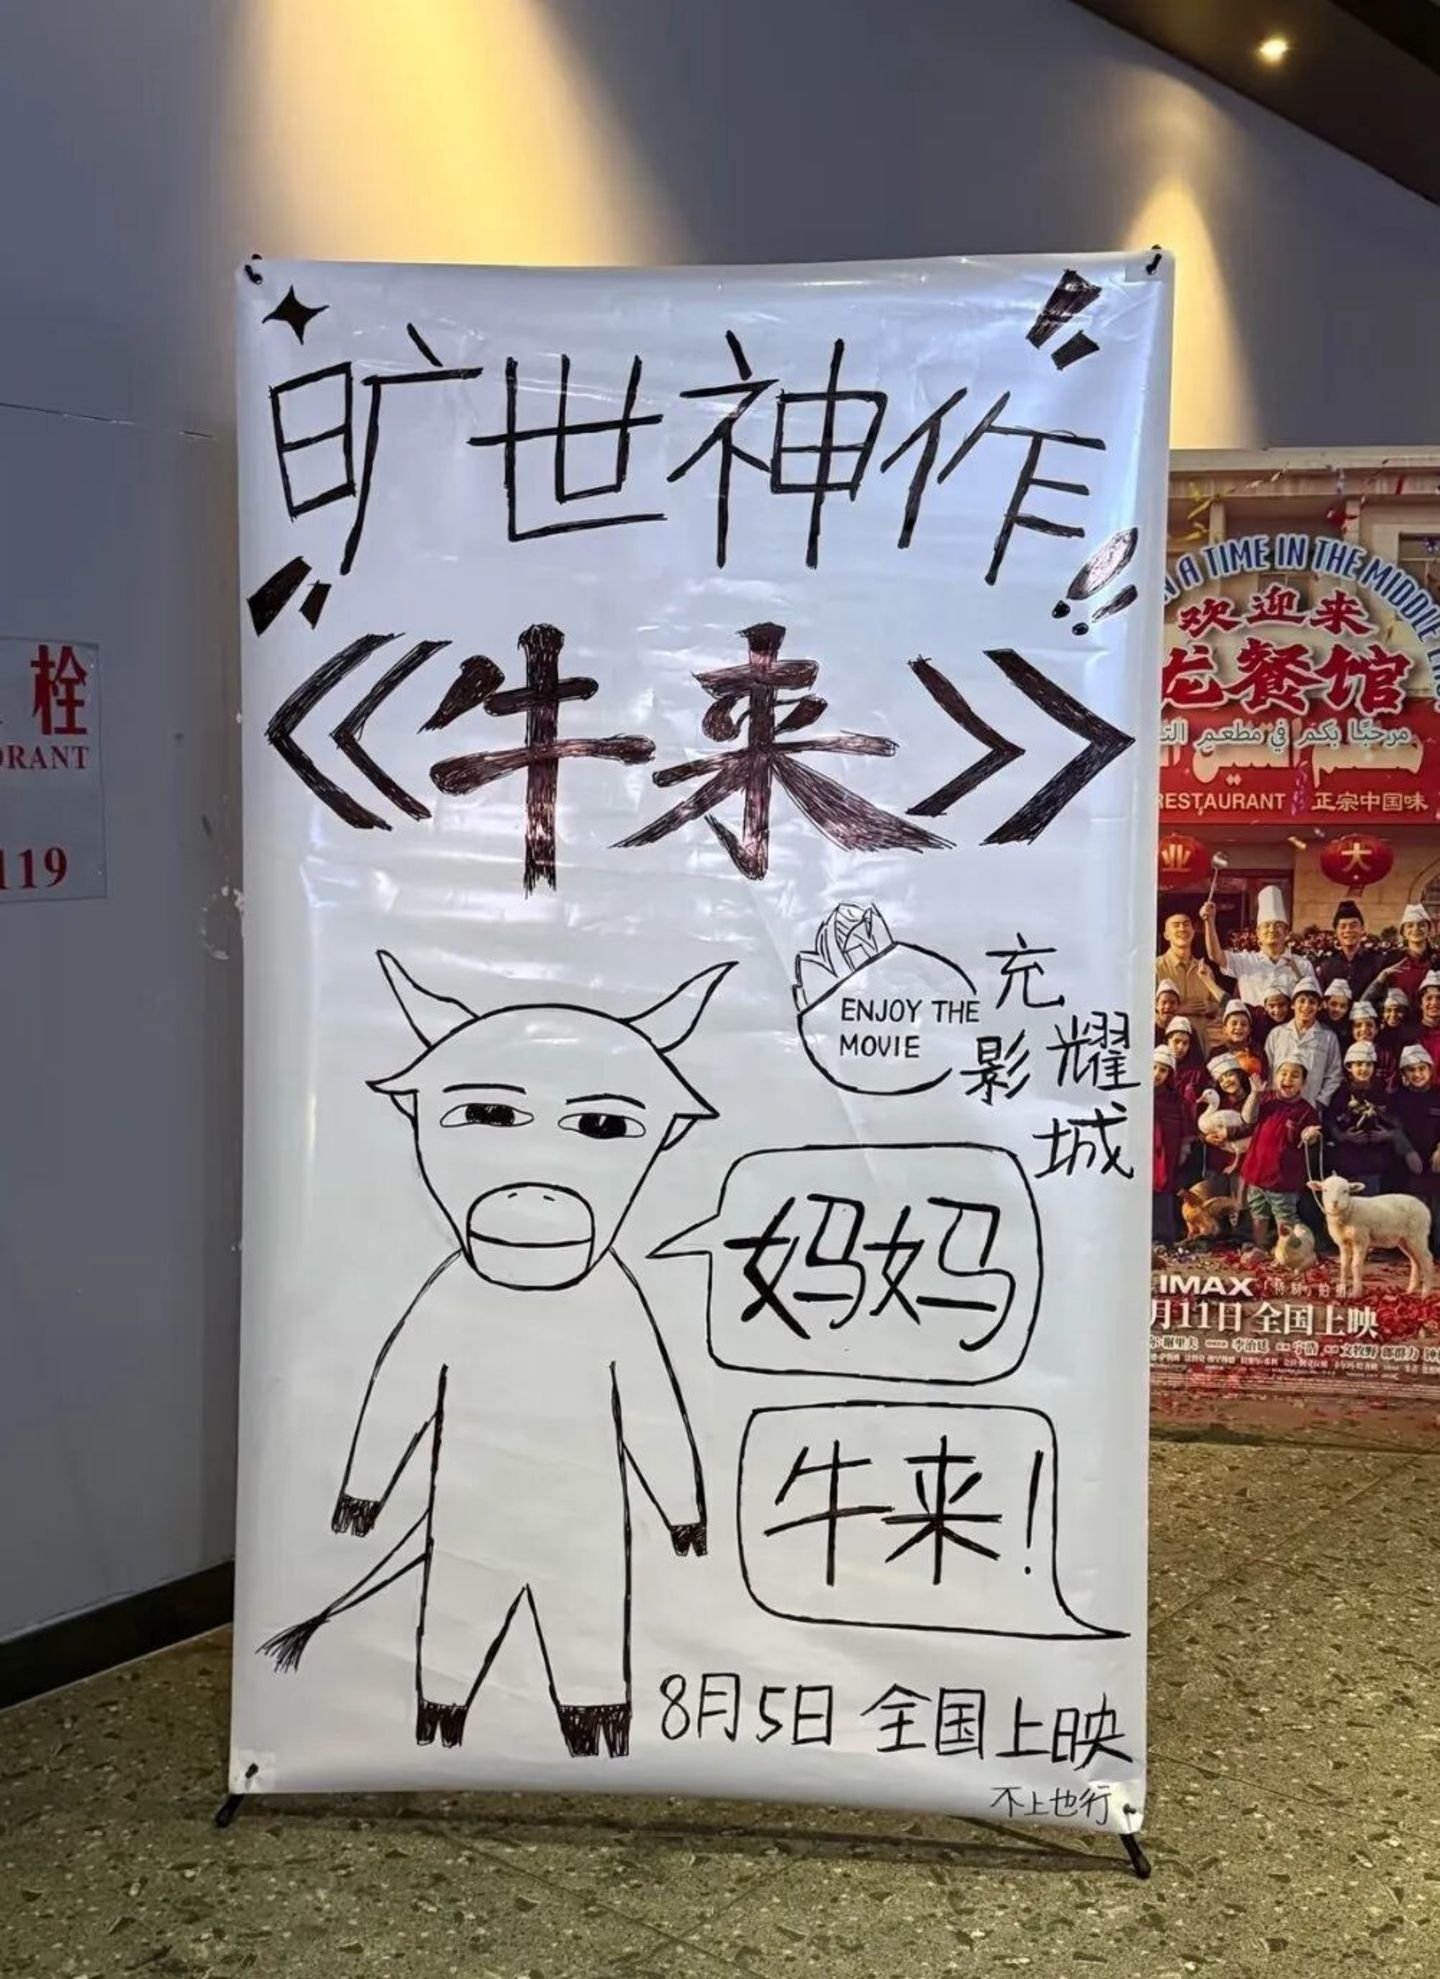 旷世神作
《牛来》
ENJOY THE
MOVIE
充耀
影城
妈妈
牛来！
8月5日 全国上映
不上也行
栓
DRANT
119
A TIME IN THE MIDDLE
欢迎来
龙餐馆
مرحبًا بكم في مطعم
RESTAURANT 正宗中国味
业
大
IMAX
月11日 全国上映